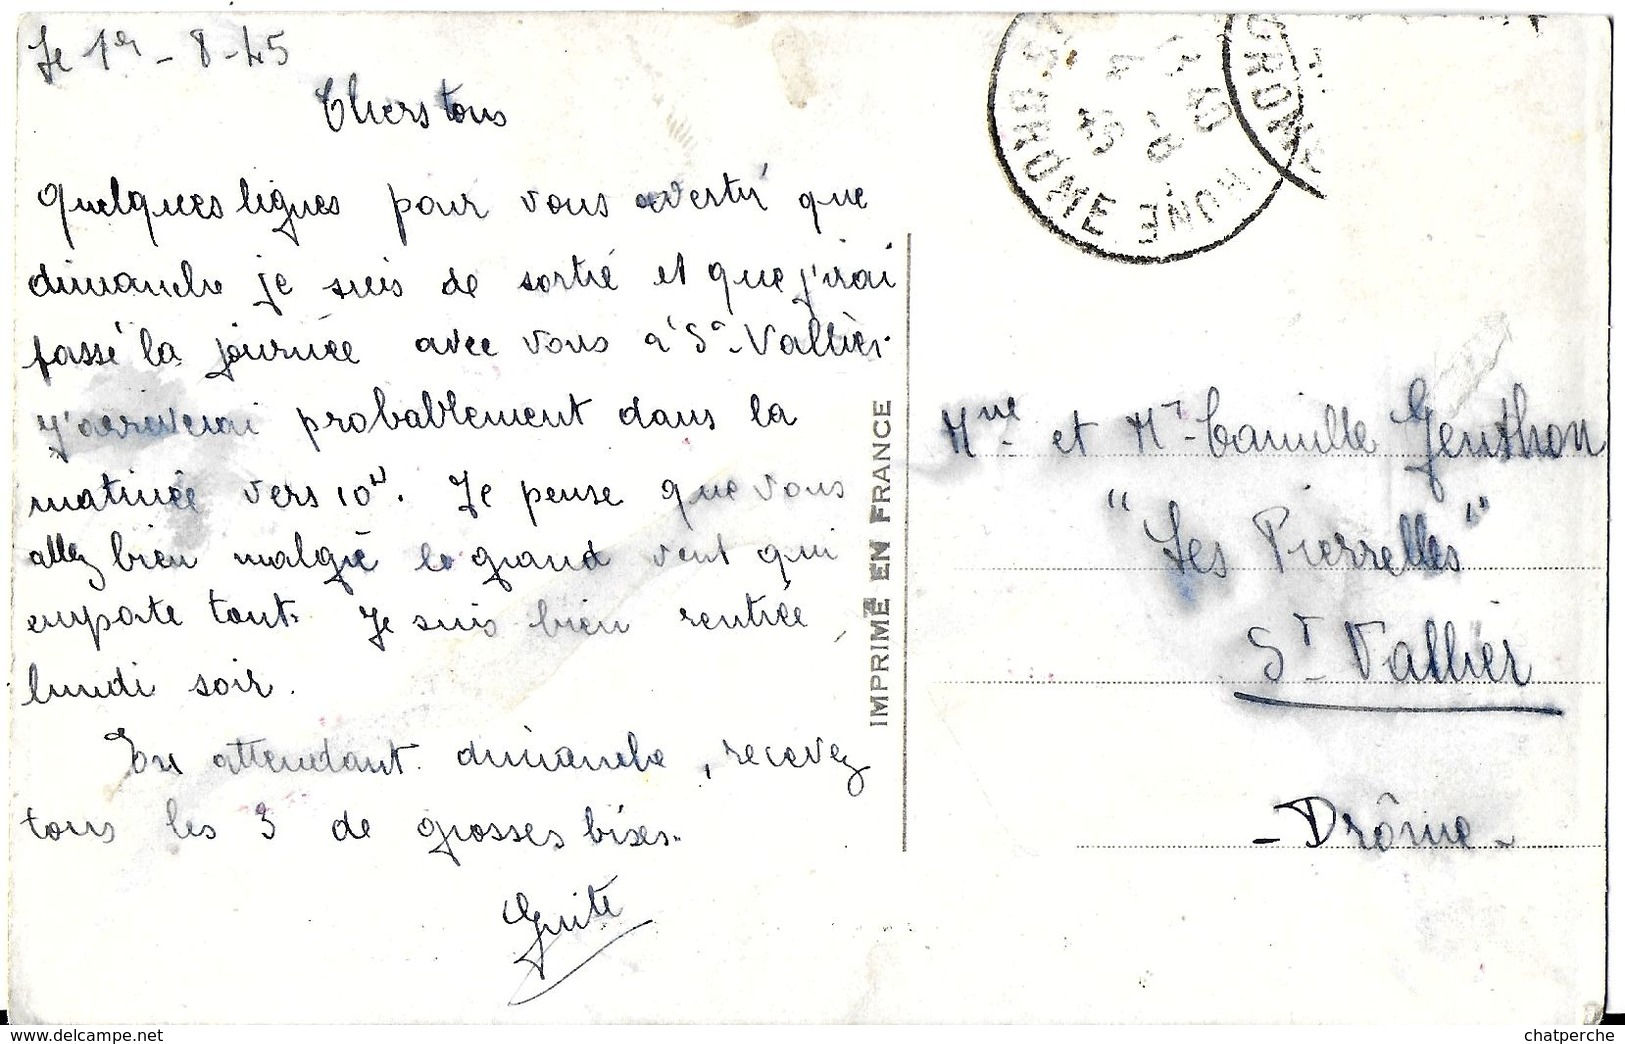 Le 1er - 8 - 45
Chers tous
Quelques lignes pour vous avertir que
dimanche je suis de sortie et que j'irai
passé la journée avec vous à St-Vallier.
J'arriverai probablement dans la
matinée vers 10H. Je pense que vous
allez bien malgré le grand vent qui
emporte tout. Je suis bien rentrée
lundi soir.
En attendant dimanche, recevez
tous les 3 de grosses bises.
Guite
IMPRIMÉ EN FRANCE
DROME
4 -8
45
DROME
Mme et Mr Camille Genthon
"Les Pierrelles"
St Vallier
- Drôme -
www.delcampe.net
chatperche